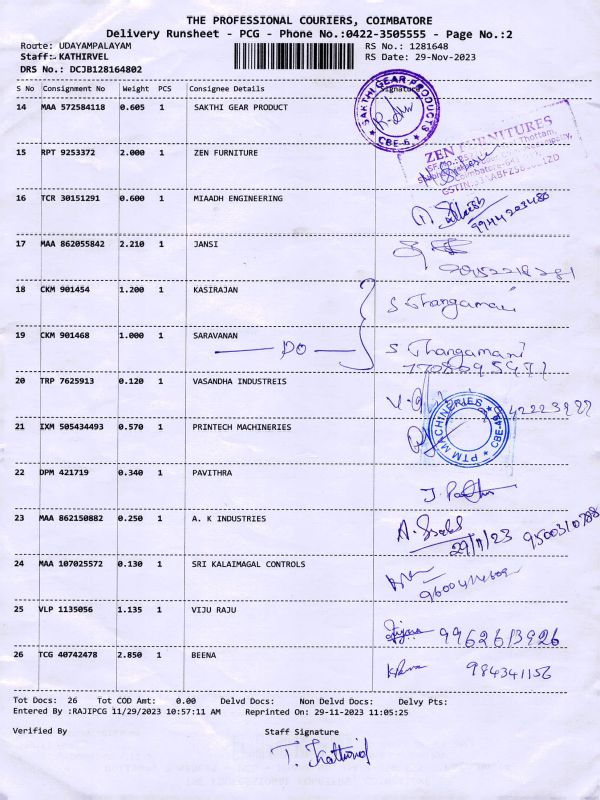 THE PROFESSIONAL COURIERS, COIMBATORE
Delivery Runsheet - PCG - Phone No.:0422-3505555 - Page No.:2
Route: UDAYAMPALAYAM RS No.: 1281648
Staff: KATHIRVEL RS Date: 29-Nov-2023
DRS No.: DCJB128164802
S No Consignment No Weight PCS Consignee Details Signature
14 MAA 572584118 0.605 1 SAKTHI GEAR PRODUCT
SAKTHI GEAR PRODUCTS
CBE-6
15 RPT 9253372 2.000 1 ZEN FURNITURE
ZEN FURNITURES
16 TCR 30151291 0.600 1 MIAADH ENGINEERING
9944203480
17 MAA 862055842 2.210 1 JANSI
18 CKM 901454 1.200 1 KASIRAJAN S Thangamani
19 CKM 901468 1.000 1 SARAVANAN S Thangamani
DO
20 TRP 7625913 0.120 1 VASANDHA INDUSTREIS
21 IXM 505434493 0.570 1 PRINTECH MACHINERIES
PTM MACHINERIES
CBE-49
22 DPM 421719 0.340 1 PAVITHRA
23 MAA 862150882 0.250 1 A. K INDUSTRIES
29/11/23 9500310788
24 MAA 107025572 0.130 1 SRI KALAIMAGAL CONTROLS
25 VLP 1135056 1.135 1 VIJU RAJU
9962613926
26 TCG 40742478 2.850 1 BEENA
984341156
Tot Docs: 26 Tot COD Amt: 0.00 Delvd Docs: Non Delvd Docs: Delvy Pts:
Entered By :RAJIPCG 11/29/2023 10:57:11 AM Reprinted On: 29-11-2023 11:05:25
Verified By Staff Signature